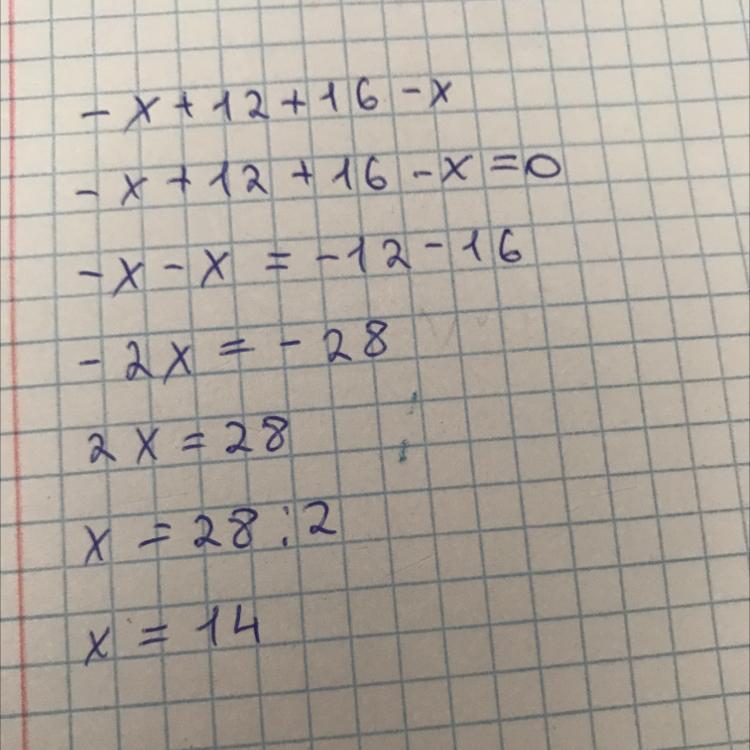 -x+12+16-x
-x+12+16-x=0
-x-x=-12-16
-2x=-28
2x=28
x=28:2
x=14